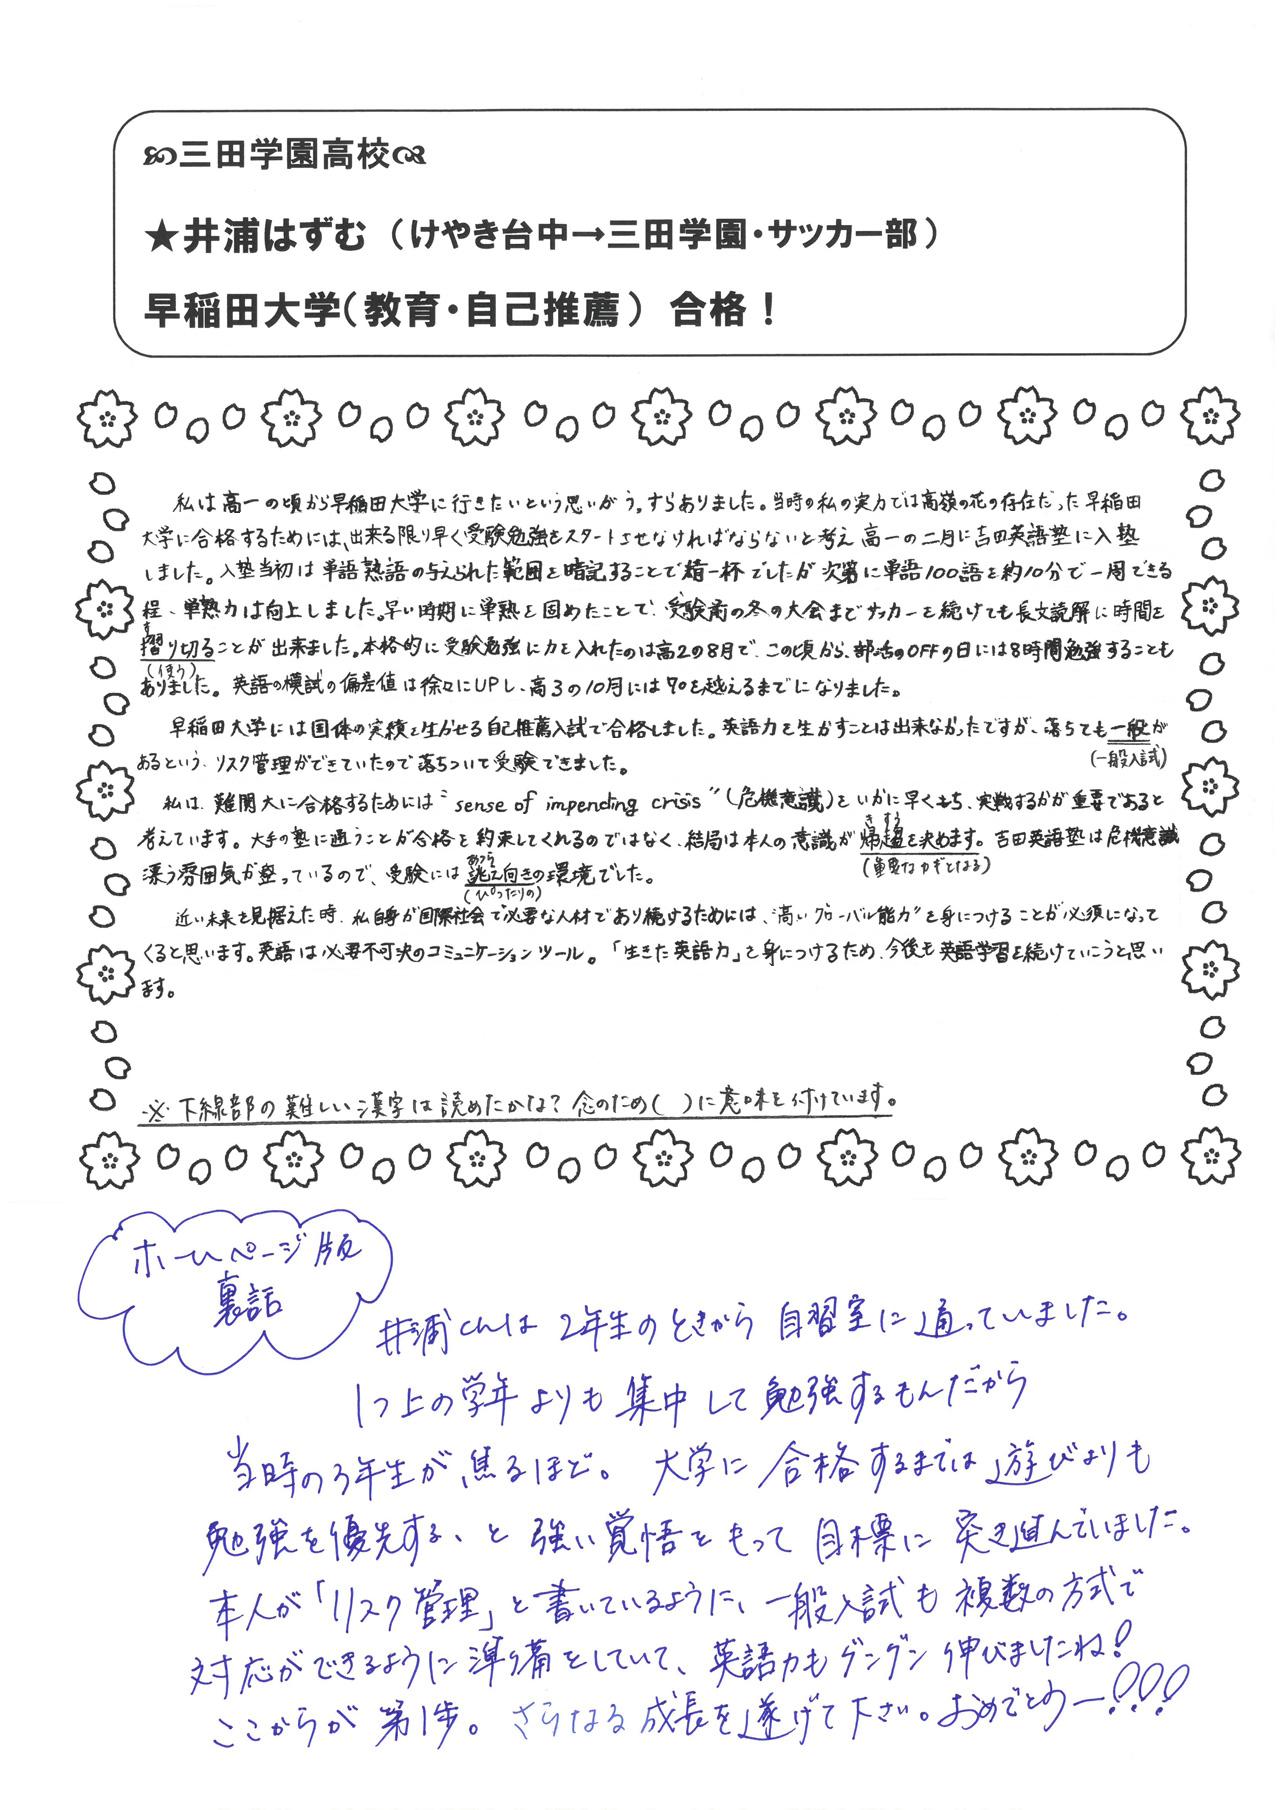 三田学園高校
★井浦はずむ（けやき台中→三田学園・サッカー部）
早稲田大学（教育・自己推薦）　合格！
私は高一の頃から早稲田大学に行きたいという思いがうっすらありました。当時の私の実力では高嶺の花の存在だった早稲田
大学に合格するためには、出来る限り早く受験勉強をスタートさせなければならないと考え高一の二月に吉田英語塾に入塾
しました。入塾当初は単語熟語の与えられた範囲を暗記することで精一杯でしたが次第に単語100語を約10分で一周できる
程、単熟力は向上しました。早い時期に単熟を固めたことで、受験前の冬の大会までサッカーを続けても長文読解に時間を
す
摺り切ることが出来ました。本格的に受験勉強に力を入れたのは高2の8月で、この頃から、部活のOFFの日には8時間勉強することも
(使う)
ありました。英語の模試の偏差値は徐々にUPし、高3の10月には70を越えるまでになりました。
早稲田大学には国体の実績を生かせる自己推薦入試で合格しました。英語力を生かすことは出来なかったですが、落ちても一般が
(一般入試)
あるという、リスク管理ができていたので落ちついて受験できました。
私は、難関大に合格するためには“sense of impending crisis”(危機意識)をいかに早くもち、実戦するかが重要であると
きすう
考えています。大手の塾に通うことが合格を約束してくれるのではなく、結局は本人の意識が帰趨を決めます。吉田英語塾は危機意識
(重要なカギとなる)
あつら
漂う雰囲気が整っているので、受験には誂え向きの環境でした。
(ぴったりの)
近い未来を見据えた時、私自身が国際社会で必要な人材であり続けるためには、“高いグローバル能力”を身につけることが必須になって
くると思います。英語は必要不可決のコミュニケーションツール。「生きた英語力」を身につけるため、今後も英語学習を続けていこうと思い
ます。
※下線部の難しい漢字は読めたかな？念のため(　)に意味を付けています。
ホームページ版
裏話
井浦くんは2年生のときから自習室に通っていました。
1つ上の学年よりも集中して勉強するもんだから
当時の3年生が焦るほど。大学に合格するまでは遊びよりも
勉強を優先する、と強い覚悟をもって目標に突き進んでいました。
本人が「リスク管理」と書いているように、一般入試も複数の方式で
対応ができるように準備をしていて、英語力もグングン伸びましたね！
ここからが第1歩。さらなる成長を遂げて下さい。おめでとうー！！！